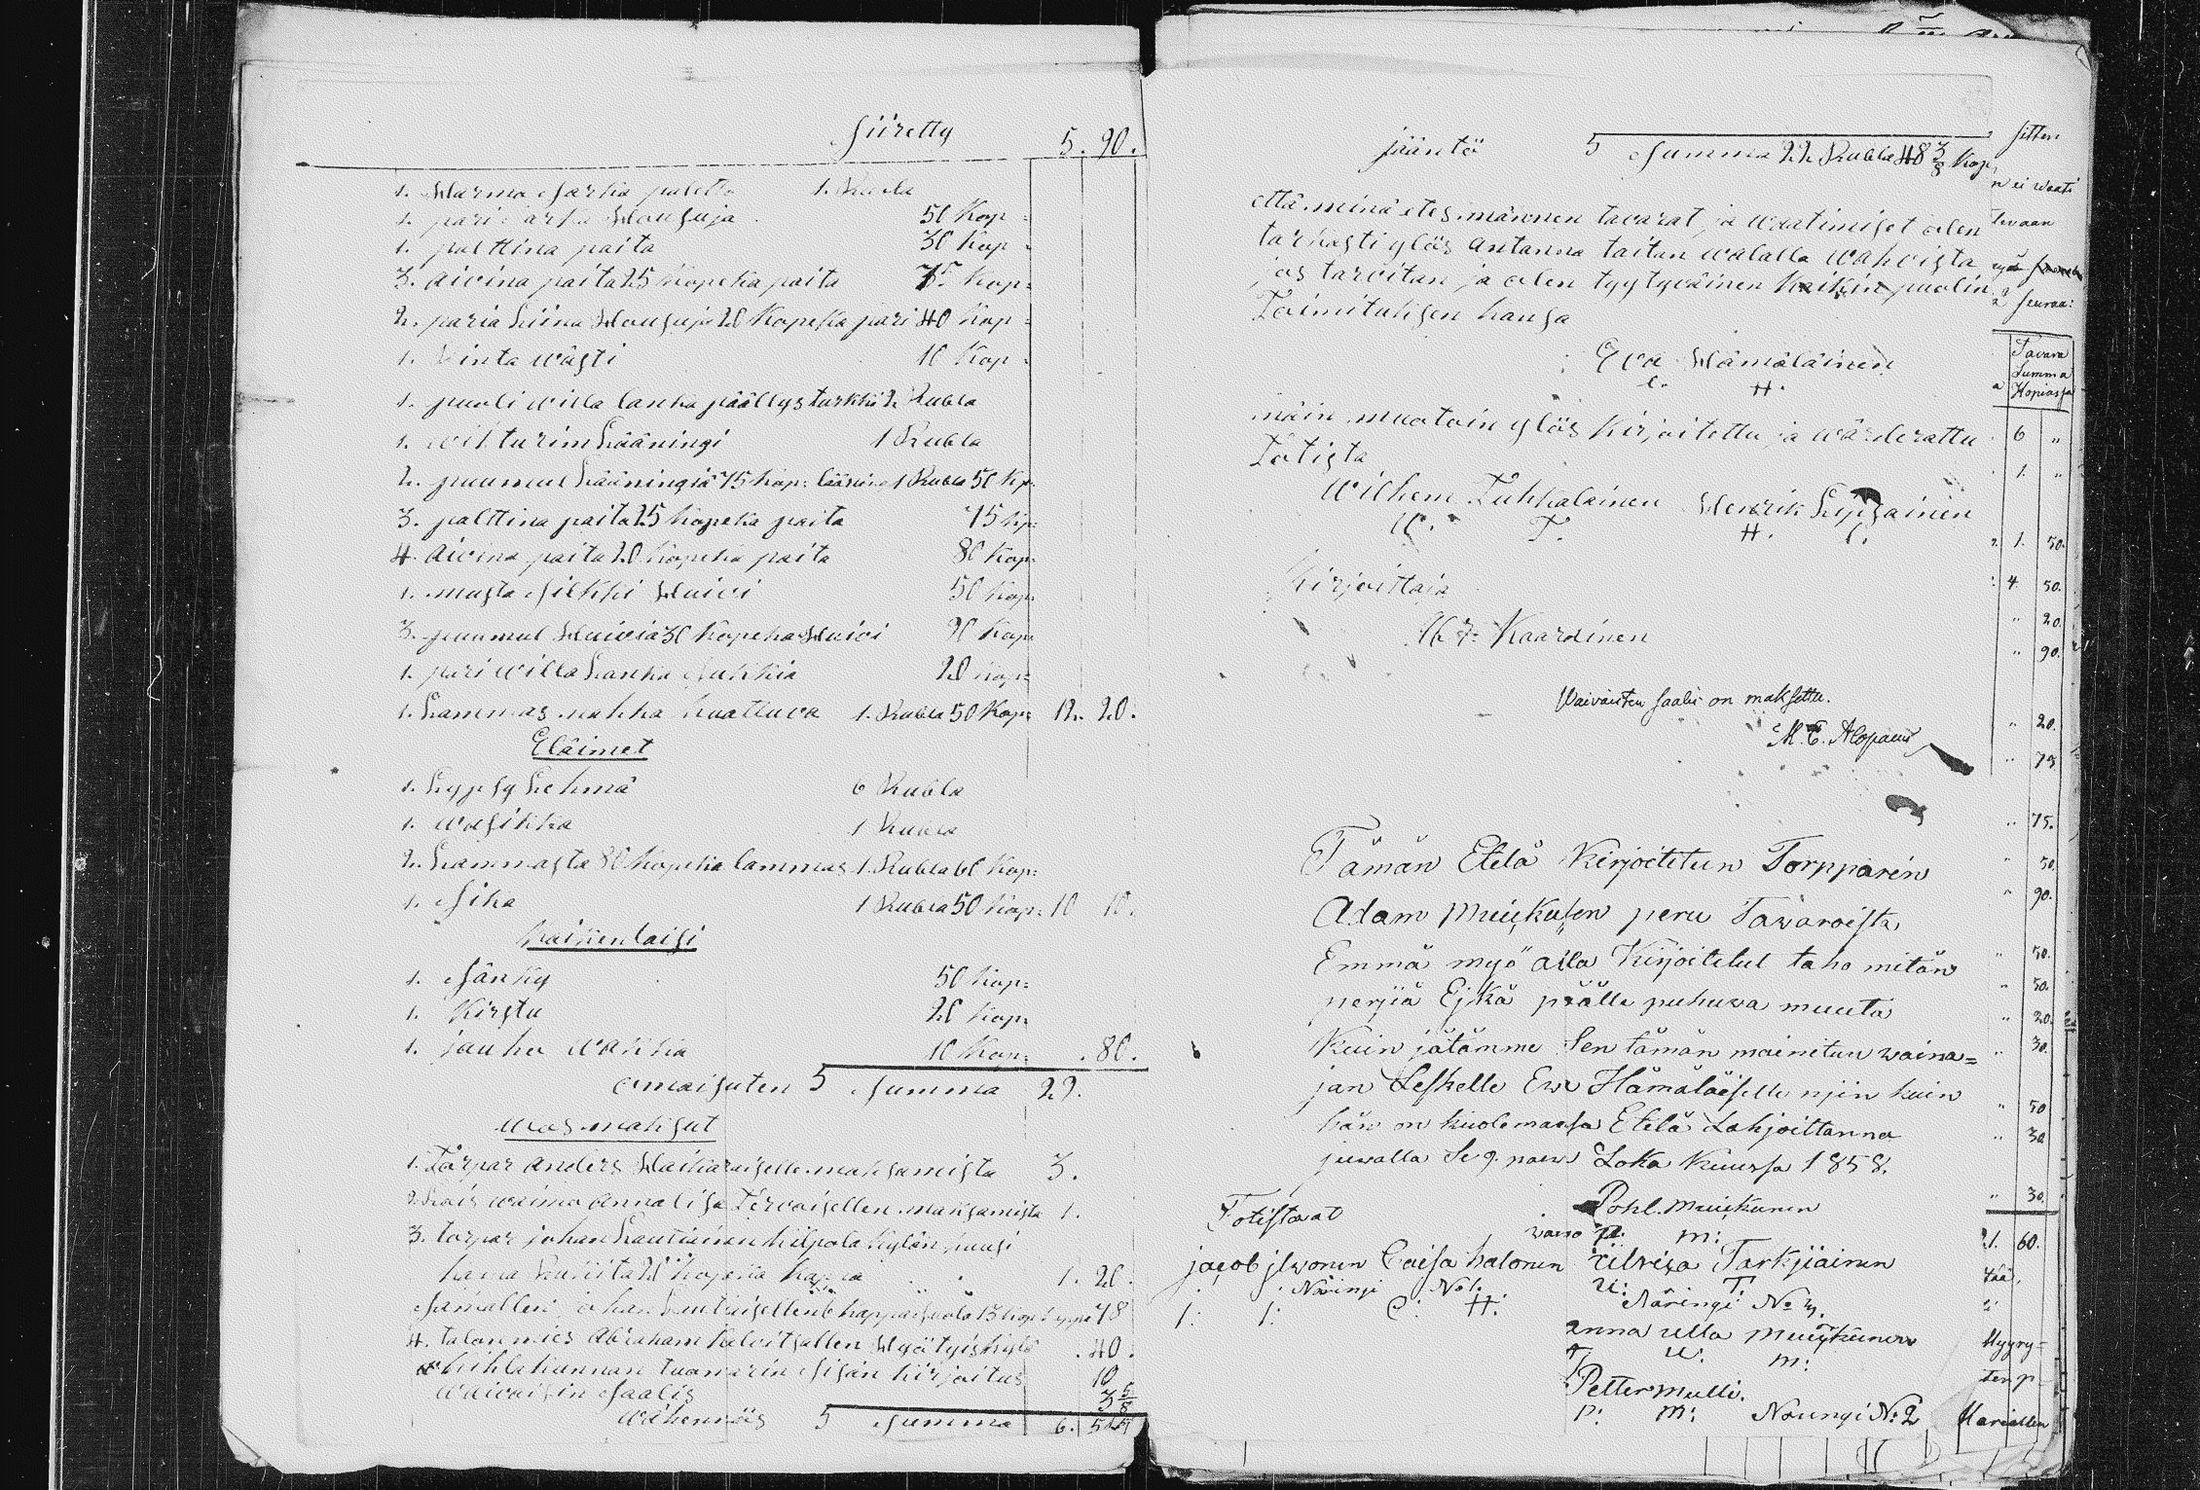 Siiretty 5. 90.
1. Harma Sarka paletti 1. Rubla
1. pari Sarka Housuja 50 Kop:
1. palttina paita 30 Kop:
3. aivina paita 25 Kopeka paita 75 Kop:
2. paria Liina Housuja 20 Kopeka pari 40 Kop:
1. Rinta Wästi 10 Kop:
1. puoli willa lanka päällys turkki 2 Rubla
1. Lääningi 1 Rubla
2. puumul Lääningiä 75 Kop: lääni 1 Rubla 50 Kp:
3. palttina paita 25 Kopeka paita 75 kp:
4. aivina paita 20 Kopeka paita 80 Kop:
1. musta Silkki Huivi 50 Kop:
3. puumul Huivia 30 Kopeka Huivi 90 Kop
1. pari willa Lanka Sukkia 20 Kop:
1. Lammas nahka 1. Rubla 50 Kop: 12. 20.
Eläimet
1. Lypsy Lehmä 6 Rubla
1. Wasikka 1 Rubla
2. Lammasta 80 Kopeka lammas 1. Rubla 60 Kop:
1. Sika 1 Rubla 50 Kop: 10 10.
Kaikenlaisi
1. Sänky 50 Kop:
1. Kirstu 20 Kop:
1. jauho wakka 10 Kop: . 80.
omaisuten Summa 29.
Ulos maksut
1. Torpar Anders maksamista 3.
2. Lois waimo Annaliisa Tervoisellen maksamista 1.
3. torpar johan Lautiainen kylän
1. 20.
Samallen johan 78
4. talon mies Abraham . 40.
Kihlakunnan tuomarin Sisän kirjoitus 10
Waivaisin Saalis 3 5/8
Wähennös Summa 6. 51 5/8
jääntö Summa 22 Rubla 48 3/8 Kop:
että minä etes männen tavarat ja waatimiset olen
tarkasti ylös antanna taitan walalla wahvista
jos tarvitan ja olen tyytyväinen kaikin puolin
Toimituksen kansa
Eva Hämäläinen
E. H.
näin muotoin ylös kirjoitettu ja wärderattu
Totista
Wilhem Tuhkalainen Henrik Lipsainen
W. T. H. L.
Kirjoittaja
Kaardinen
Waivaisten saalis on maksettu.
M. E. Alopaeus
Tämän Etelä Kirjoitetun Torpparin
Adam Muikusen peru Tavaroista
Emmä myö alla Kirjoitetut taho mitän
perjiä Ejkä päälle puhuva muuta
Kuin jätämme Sen tämän mainetun waina=
jan Leskelle Eva Hämäläiselle njin kuin
hän on kuolemansa Etelä Lahjoittanna
juvalla Se 9. päev Loka Kuussa 1858.
Totistavat Pohl. Muikunen
waro P. M:
jacob jlwonen Caisa halonen Ulriga Tarkjiainen
Näringi No 1. U: T.
I: I: C: H: Näringi No 3.
Anna ulla Muikunen
A U: M:
Petter Mulli.
P: M: Näringi No 2
Sitten
n ei waati
Tavara
Summa
Kopiassa
6 "
1. "
1. 50.
4. 50.
" 20.
" 90.
" 20.
" 75
" 75.
" 50.
" 90.
" 50.
" 50.
" 20.
" 30.
" 50
" 30
" 30.
21. 60.
Hyyry=